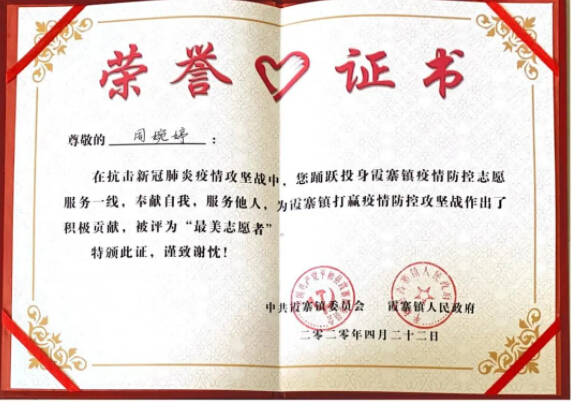 荣誉证书
尊敬的 周婉婷 :
在抗击新冠肺炎疫情攻坚战中，您踊跃投身霞寨镇疫情防控志愿
服务一线，奉献自我，服务他人，为霞寨镇打赢疫情防控攻坚战作出了
积极贡献，被评为“最美志愿者”
特颁此证，谨致谢忱！
中共霞寨镇委员会 霞寨镇人民政府
二〇二〇年四月二十二日